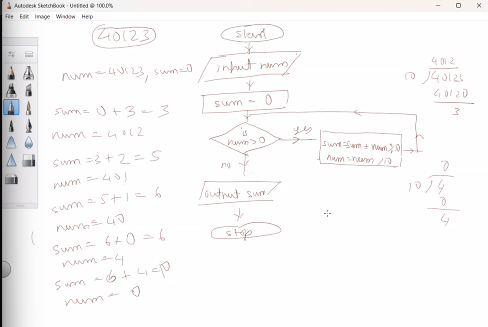 Autodesk SketchBook - Untitled @ 100.0%
File Edit Image Window Help
40123
num=40123, sum=0
sum=0+3=3
num=4012
sum=3+2=5
num=401
sum=5+1=6
num=40
sum=6+0=6
num=4
sum=6+4=10
num=0
start
input num
sum=0
is
num>0
yes
no
sum=sum+num%10
num=num/10
output sum
stop
4012
10 √40123
40120
3
0
10 √4
0
4